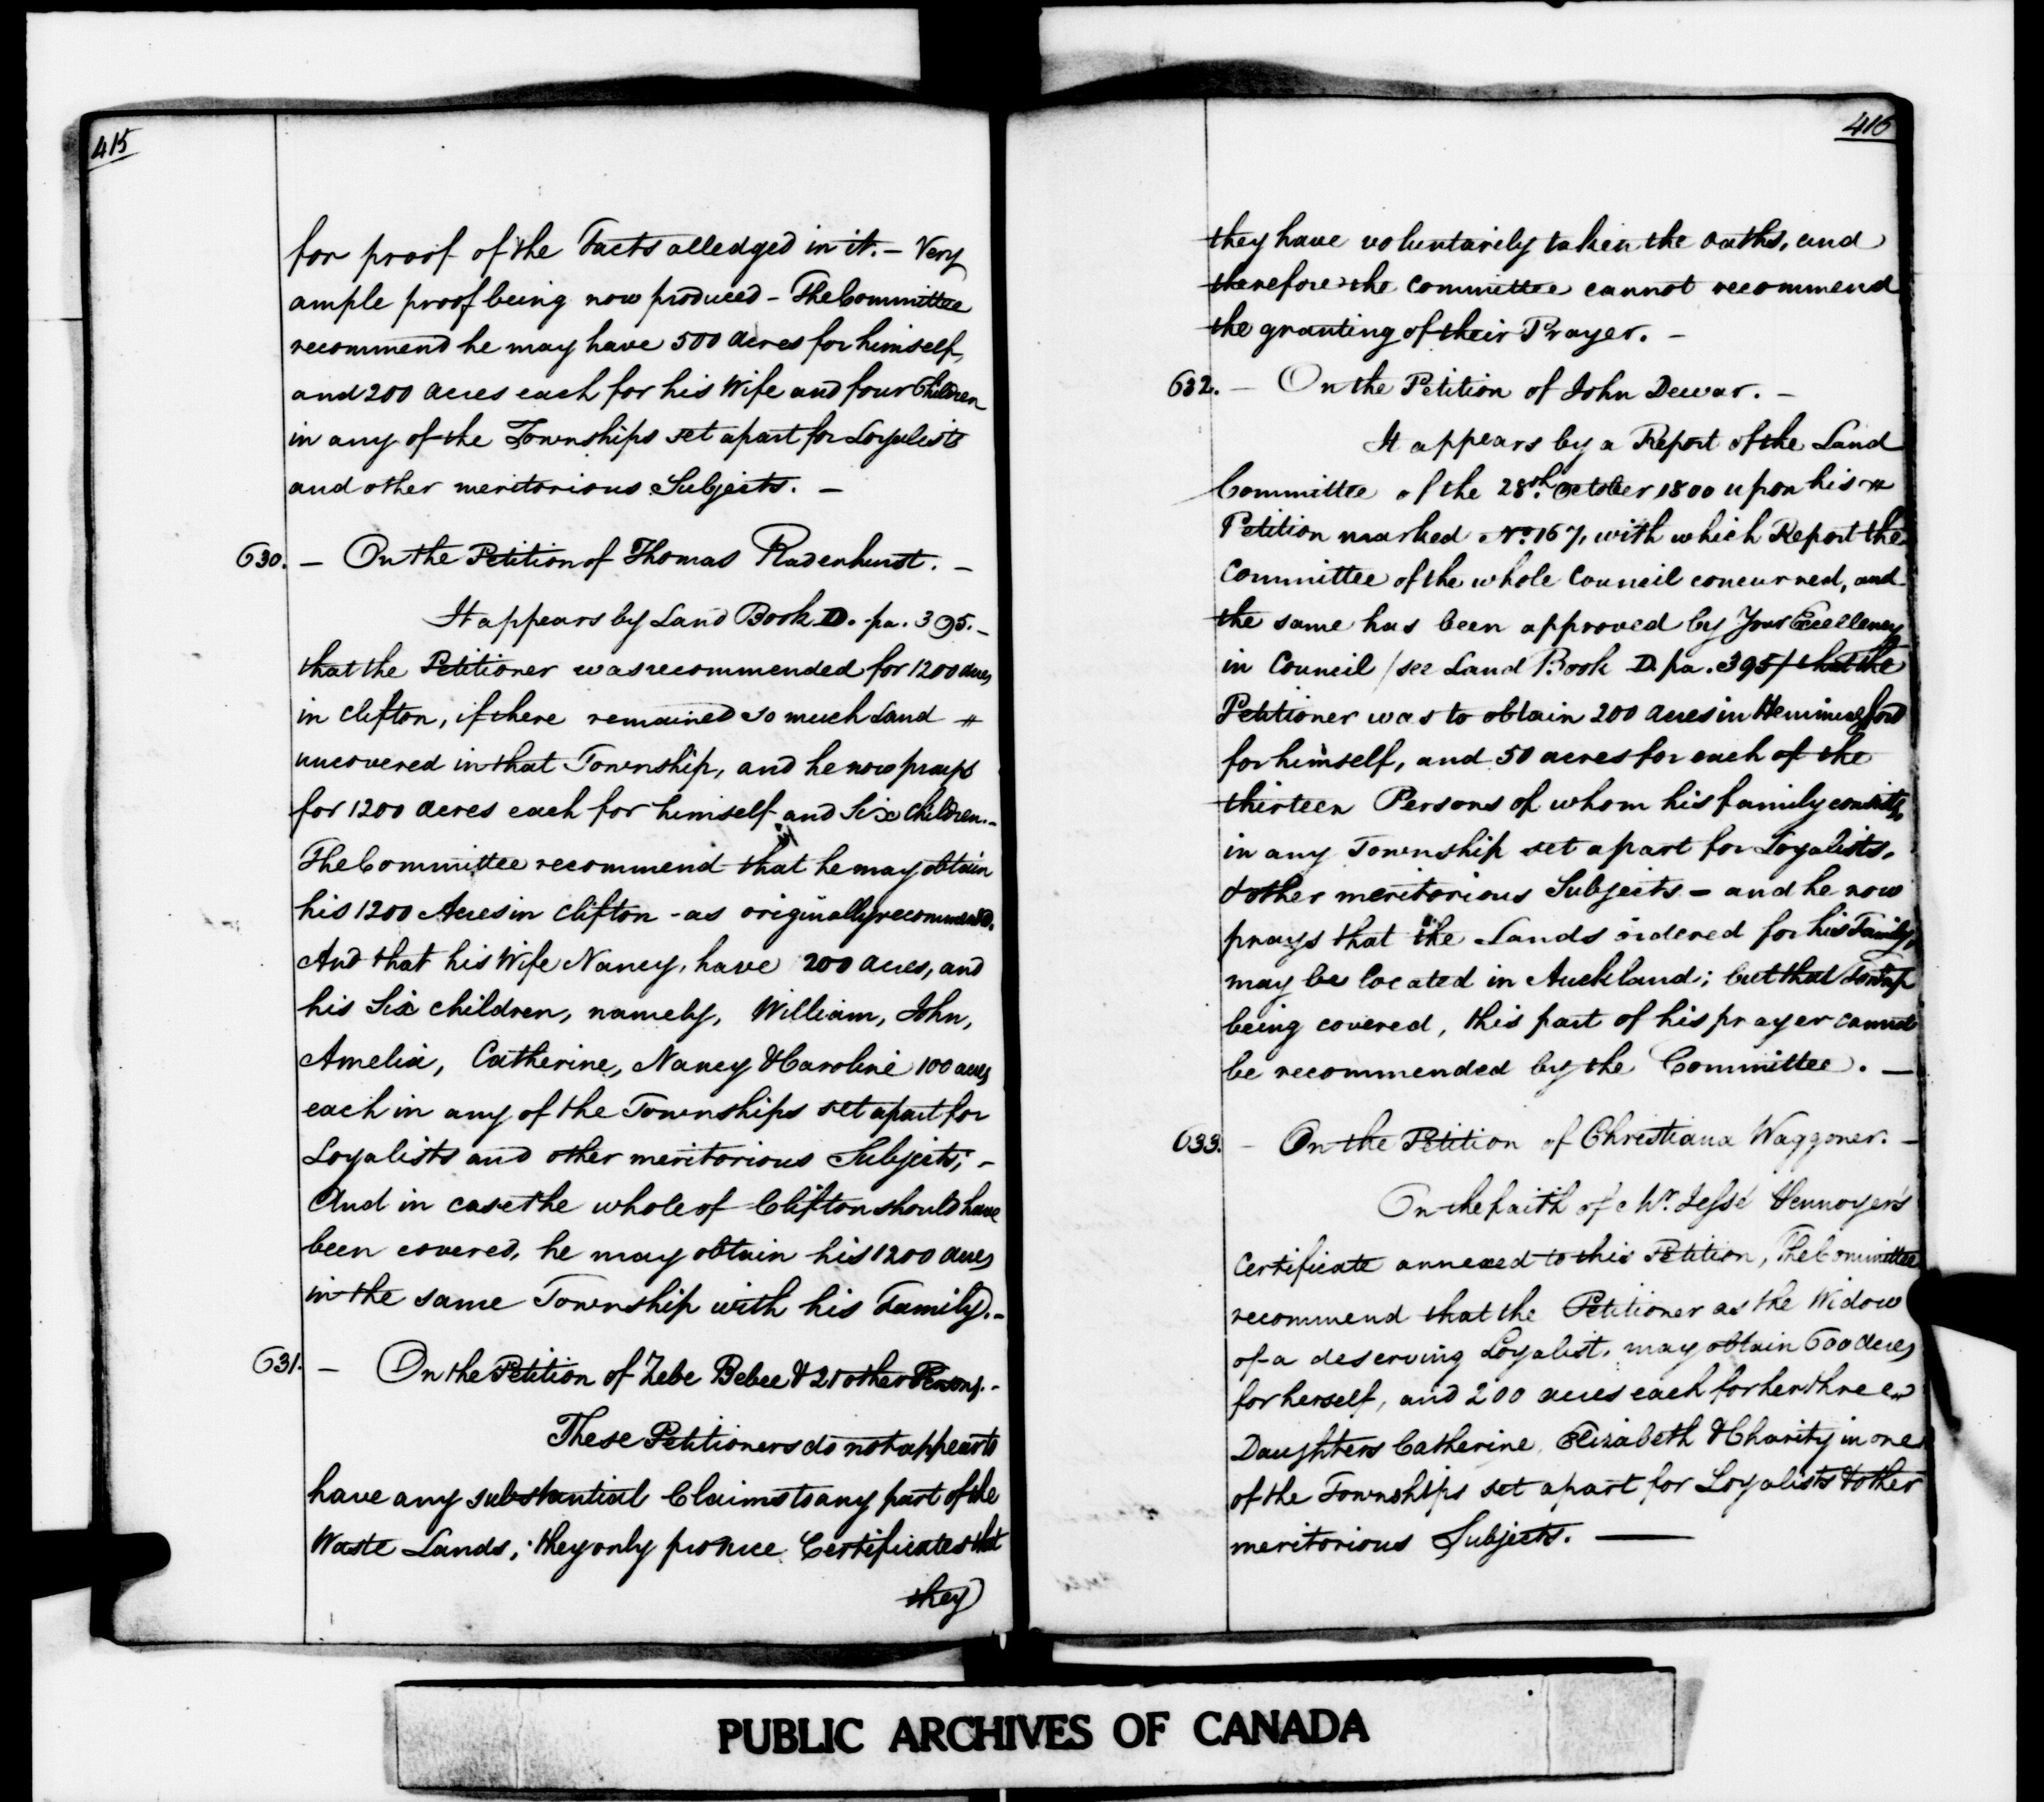 415
for proof of the Facts alledged in it. – Very
ample proof being now produced – The Committee
recommend he may have 500 acres for himself,
and 200 acres each for his Wife and four Children
in any of the Townships set apart for Loyalists
and other meritorious Subjects. –
630. – On the Petition of Thomas Radenhurst. –
It appears by Land Book D. pa. 395. –
that the Petitioner was recommended for 1200 acres
in Clifton, if there remained so much Land
uncovered in that Township, and he now prays
for 1200 acres each for himself and Six Children. –
The Committee recommend that he may obtain
his 1200 Acres in Clifton – as originally recommended.
And that his Wife Nancy, have 200 acres, and
his Six children, namely, William, John,
Amelia, Catherine, Nancy & Caroline 100 acres
each in any of the Townships set apart for
Loyalists and other meritorious Subjects; –
And in case the whole of Clifton should have
been covered, he may obtain his 1200 acres
in the same Township with his Family. –
631. – On the Petition of Zebe Bebee & 21 other Persons. –
These Petitioners do not appear to
have any substantial Claims to any part of the
Waste Lands; they only produce Certificates that
they
416
they have voluntarily taken the oaths, and
therefore the Committee cannot recommend
the granting of their Prayer. –
632. – On the Petition of John Dewar. –
It appears by a Report of the Land
Committee of the 28th. October 1800 upon his
Petition marked No. 167, with which Report the
Committee of the whole Council concurred, and
the same has been approved by Your Excellency
in Council / see Land Book D. pa. 395 / that the
Petitioner was to obtain 200 acres in Hemmingford
for himself, and 50 acres for each of the
thirteen Persons of whom his family consists,
in any Township set apart for Loyalists,
& other meritorious Subjects – and he now
prays that the Lands ordered for his Family,
may be located in Auckland; but that Townp
being covered, this part of his prayer cannot
be recommended by the Committee. –
633. – On the Petition of Christiana Waggoner. –
On the faith of Mr. Jesse Pennoyer's
Certificate annexed to this Petition, The Committee
recommend that the Petitioner as the Widow
of a deserving Loyalist, may obtain 600 acres
for herself, and 200 acres each for her three
Daughters Catherine, Elizabeth & Charity in one
of the Townships set apart for Loyalists & other
meritorious Subjects. —
PUBLIC ARCHIVES OF CANADA